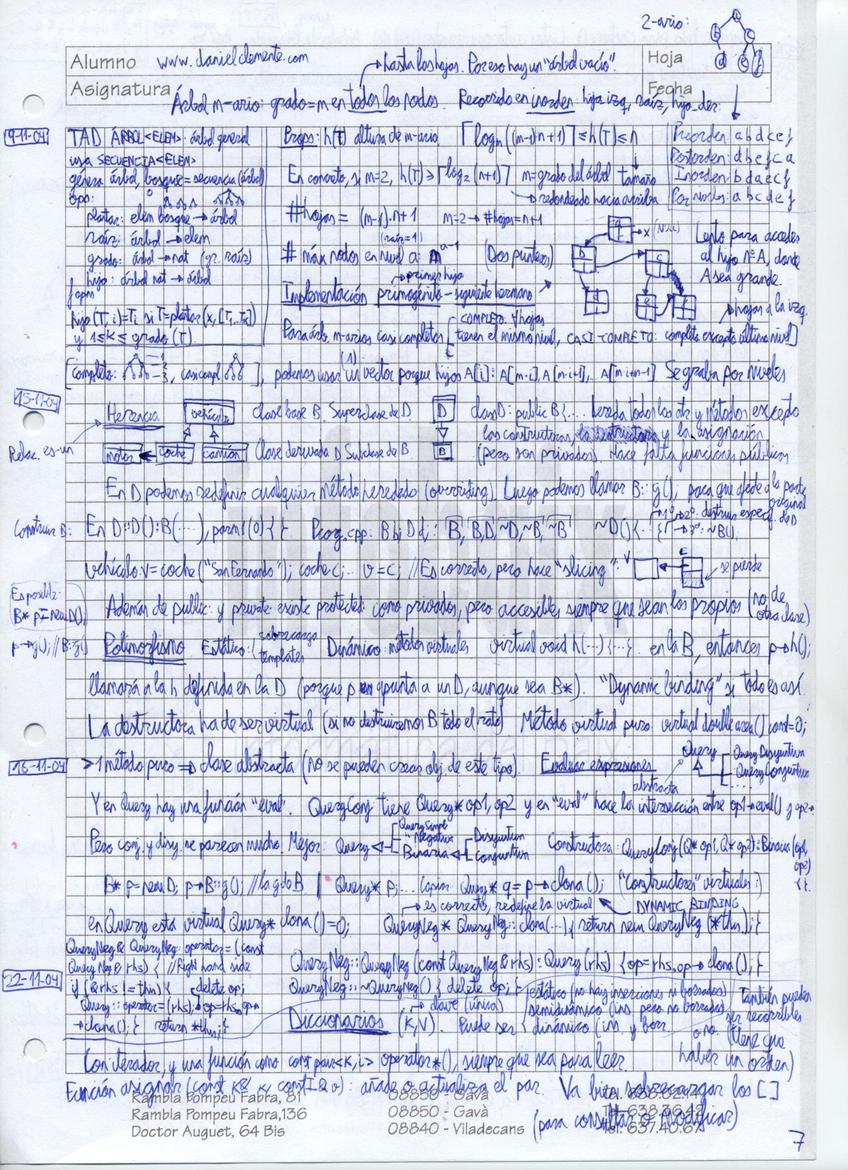 2-ario:
Alumno www.danielclemente.com
Hoja
→hasta las hojas. Por eso hay un "árbol vacío".
Asignatura
Fecha
Árbol m-ario: grado=m en todos los nodos. Recorrido en inorden: hijo izq, raíz, hijo der.
9-11-04
TAD ÁRBOL<ELEM> árbol general
usa SECUENCIA<ELEM>
género árbol, bosque=secuencia(árbol)
ops:
plantar: elem bosque → árbol
raíz: árbol → elem
grado: árbol → nat (gr. raíz)
hijo: árbol nat → árbol
fops
hijo(T,i)=Ti si T=plantar(x,[T1..Tk])
y 1≤k≤grado(T)
Props: h(T) altura de m-ario. ⌈logm((m-1)n+1)⌉ ≤ h(T) ≤ n
En concreto, si m=2, h(T) ≥ ⌈log2(n+1)⌉ m=grado del árbol tamaño
→ redondeado hacia arriba
#hojas = (m-1)·n+1 m=2 → #hojas=n+1
(raíz=1)
# máx nodos en nivel a: m^(a-1) (Dos punteros)
→primer hijo
Implementación primogénito - siguiente hermano
Preorden: a b d c e f
Postorden: d b e f c a
Inorden: b d a e c f
Por niveles: a b c d e f
Lento para acceder
al hijo nº A, donde
A sea grande.
COMPLETO: hojas
Para árb. m-arios casi completos [ tienen el mismo nivel, CASI-COMPLETO: completo excepto último nivel]
hojas a la izq.
[Completo: , casi compl ], podemos usar un vector porque hijos A[i]: A[m·i], A[m·i+1], A[m·i+m-1] Se graba por niveles
15-11-04
Herencia vehículo clase base B. Superclase de D D class D: public B {... hereda todos los atr y métodos excepto
los constructores, la destructora y la asignación
Relac. es-un
moto coche camión Clase derivada D Subclase de B B (pero son privados) Hace falta funciones públicas
En D podemos redefinir cualquier método heredado (overriding). Luego podemos llamar B::g(), para que afecte a la parte original
Construir B: En D::D():B(...), parm1(0) { } Prog.cpp: B b; D d; B, B, D, ~D, ~B, ~B ~D(){ 1º: destruir específ. de D 2º: ~B()
vehículo v = coche("San Fernando"); coche c; ... v=c; //Es correcto, pero hace "slicing": v c se pierde
Es posible:
B* p=new D();
p→g(); //B::g()
Además de public: y private: existe protected: como privados, pero accesibles siempre que sean los propios (no de otra clase)
Polimorfismo Estático: { sobrecarga templates Dinámico: métodos virtuales virtual void h(...){...} en la B, entonces p→h();
llamará a la h definida en la D (porque p apunta a un D, aunque sea B*). "Dynamic binding" si todo es así.
La destructora ha de ser virtual (si no destruiremos B todo el rato) Método virtual puro: virtual double area() const=0;
16-11-04
>1 método puro ⇒ clase abstracta (no se pueden crear obj. de este tipo). Evaluar expresiones
abstracta Query QueryDisyuntiva QueryConjuntiva
Y en Query hay una función "eval". QueryConj tiene Query* op1, op2 y en "eval" hace la intersección entre op1→eval() y op2→
Pero conj. y disy. se parecen mucho. Mejor: Query QuerySimple Negativa Binaria Disyuntiva Conjuntiva Constructora: QueryConj(Q* op1, Q* op2):Binaria(op1, op2) { }
B* p=new D; p→B::g(); //la g de B | Query* p; ... Copiar: Query* q = p→clona(); "Constructores" virtuales :)
→ es correcto, redefine la virtual DYNAMIC BINDING
en Query esta virtual Query* clona()=0; QueryNeg* QueryNeg::clona(...) { return new QueryNeg(*this); }
QueryNeg& QueryNeg::operator=(const
QueryNeg& rhs) { //Right hand side
if (&rhs != this) { delete op;
Query::operator=(rhs); op=rhs.op→
→clona(); } return *this; }
QueryNeg::QueryNeg(const QueryNeg& rhs): Query(rhs) {op=rhs.op→clona(); }
QueryNeg::~QueryNeg() { delete op; }
22-11-04
→clave (única)
Diccionarios (K,V). Puede ser { estático (no hay inserciones ni borrados)
semidinámico (ins pero no borrados)
dinámico (ins y borr
También pueden
ser recorribles
o no (tiene que
haber un orden)
Con iterador, y una función como const pair<K,I> operator*(), siempre que sea para leer.
Función asignar(const K& k, const I& i): añade o actualiza el par. Va bien sobrecargar los []
(para consultar o modificar)
Rambla Pompeu Fabra, 81 08850 - Gavà
Rambla Pompeu Fabra,136 08850 - Gavà
Doctor Auguet, 64 Bis 08840 - Viladecans tel. 637.40.67
7